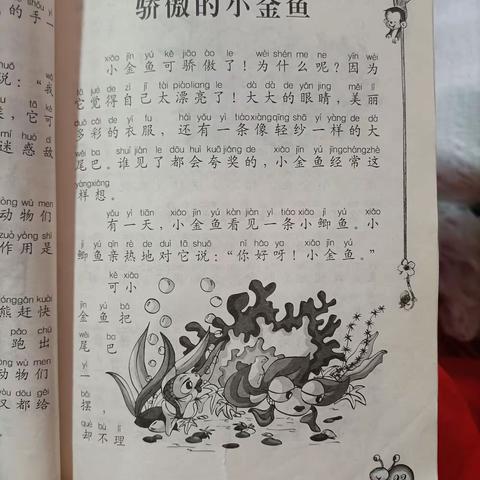 的手一
说：“我
tā kě
，它可
mí huò dí
迷惑敌
wù men
动物们
zuò yòng shì
作用是
gǎn kuài
熊赶快
pǎo chū
跑出
wù men
动物们
yòu dōu gěi
又都给
骄傲的小金鱼
xiǎo jīn yú kě jiāo ào le wèi shén me ne yīn wèi
小金鱼可骄傲了！为什么呢？因为
tā jué de zì jǐ tài piàoliang le dà dà de yǎn jing měi lì
它觉得自己太漂亮了！大大的眼睛，美丽
duō cǎi de yī fu hái yǒu yì tiáo xiàng qīng shā yí yàng de dà
多彩的衣服，还有一条像轻纱一样的大
wěi ba shuí jiàn le dōu huì kuā jiǎng de xiǎo jīn yú jīng cháng zhè
尾巴。谁见了都会夸奖的，小金鱼经常这
yàng xiǎng
样想。
yǒu yì tiān xiǎo jīn yú kàn jiàn yì tiáo xiǎo jì yú xiǎo
有一天，小金鱼看见一条小鲫鱼。小
jì yú qīn rè de duì tā shuō nǐ hǎo ya xiǎo jīn yú
鲫鱼亲热地对它说：“你好呀！小金鱼。”
kě xiǎo
可小
jīn yú bǎ
金鱼把
wěi ba
尾巴
yì
一
bǎi
摆，
què bù lǐ
却不理